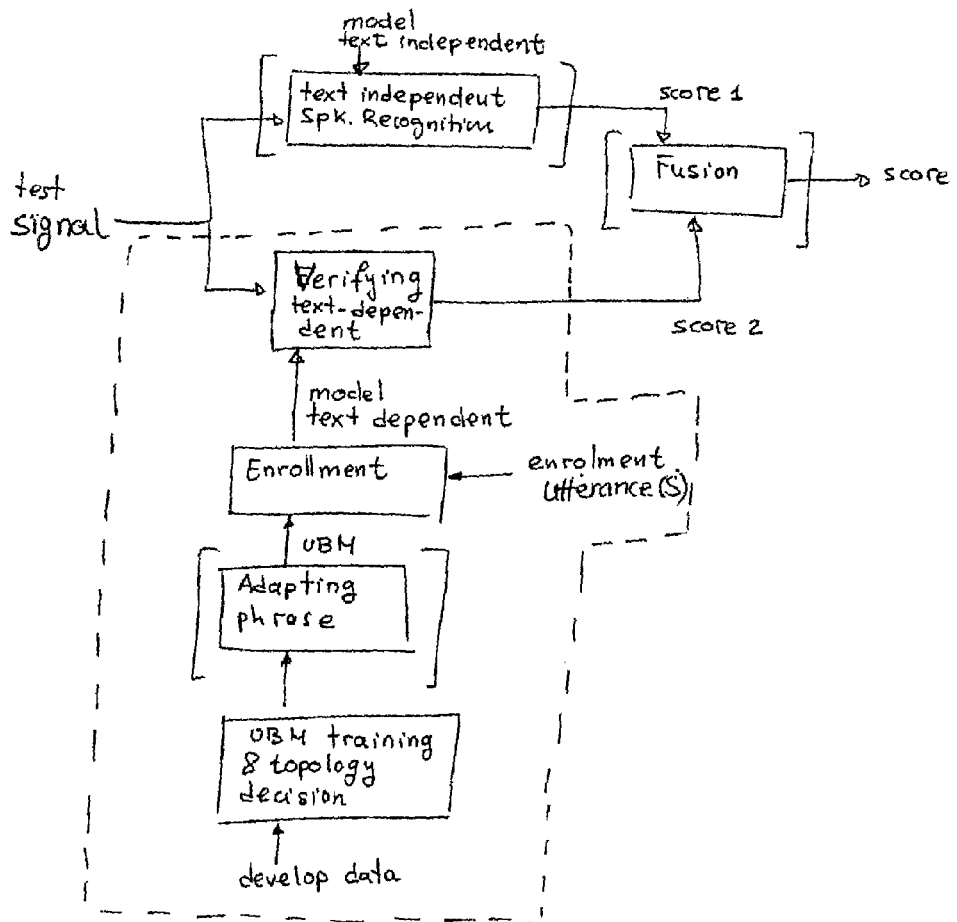 model
text independent
text independent
Spk. Recognition
score 1
Fusion
score
test
signal
Verifying
text-depen-
dent
score 2
model
text dependent
Enrollment
enrolment
utterance(s)
UBM
Adapting
phrase
UBM training
& topology
decision
develop data